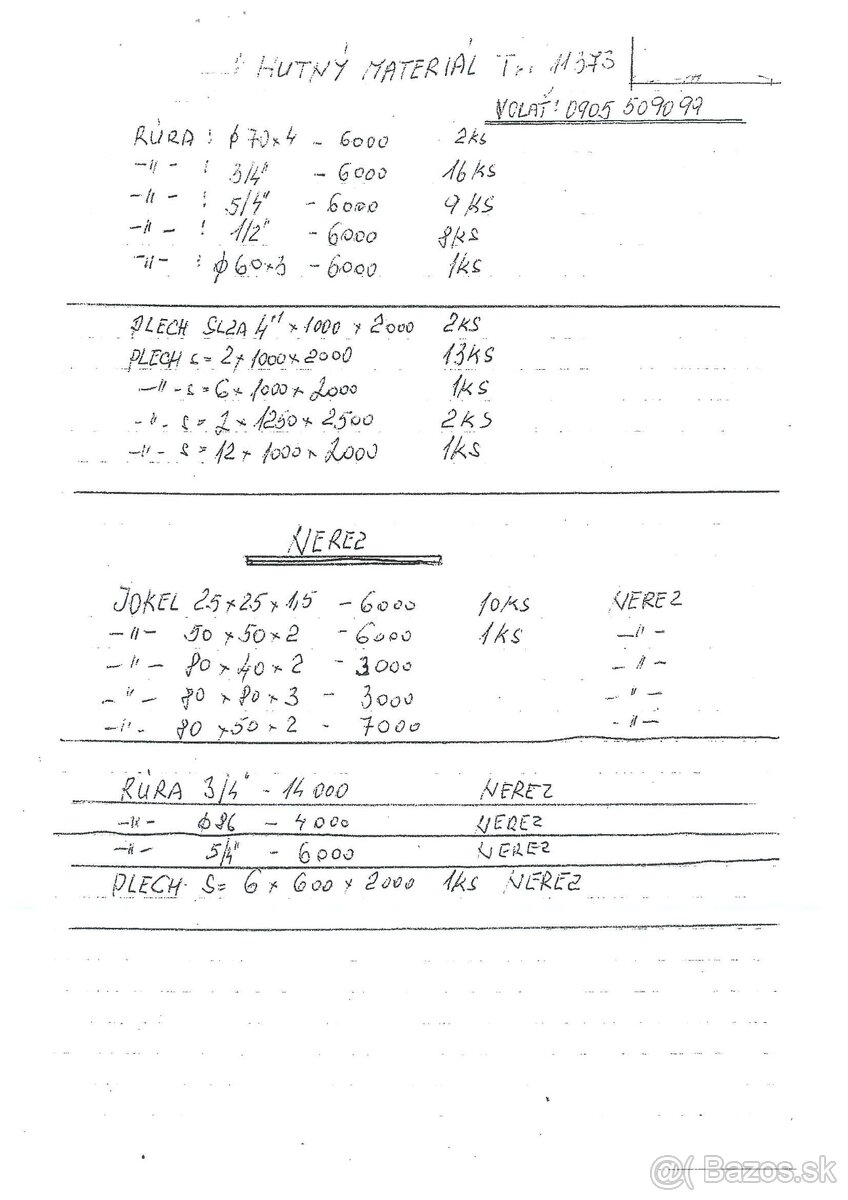 HUTNÝ MATERIÁL Tr. 11373
VOLAŤ! 0905 509099
RÚRA : ϕ 70x4 - 6000 2ks
-"- : 3/4" - 6000 16KS
-"- : 5/4" - 6000 9KS
-"- : 1/2" - 6000 8KS
-"- : ϕ 60x3 - 6000 1KS
PLECH SLZA 4" x 1000 x 2000 2KS
PLECH s= 2 x 1000 x 2000 13KS
-"- s= 6 x 1000 x 2000 1KS
-"- s= 2 x 1250 x 2500 2KS
-"- s= 12 x 1000 x 2000 1KS
NEREZ
JOKEL 25 x 25 x 1,5 - 6000 10KS NEREZ
-"- 50 x 50 x 2 - 6000 1KS -"-
-"- 80 x 40 x 2 - 3000 -"-
-"- 80 x 80 x 3 - 3000 -"-
-"- 80 x 50 x 2 - 7000 -"-
RÚRA 3/4" - 14000 NEREZ
-"- - 4000 NEREZ
-"- 5/4" - 6000 NEREZ
PLECH S= 6 x 600 x 2000 1KS NEREZ
@( Bazos.sk